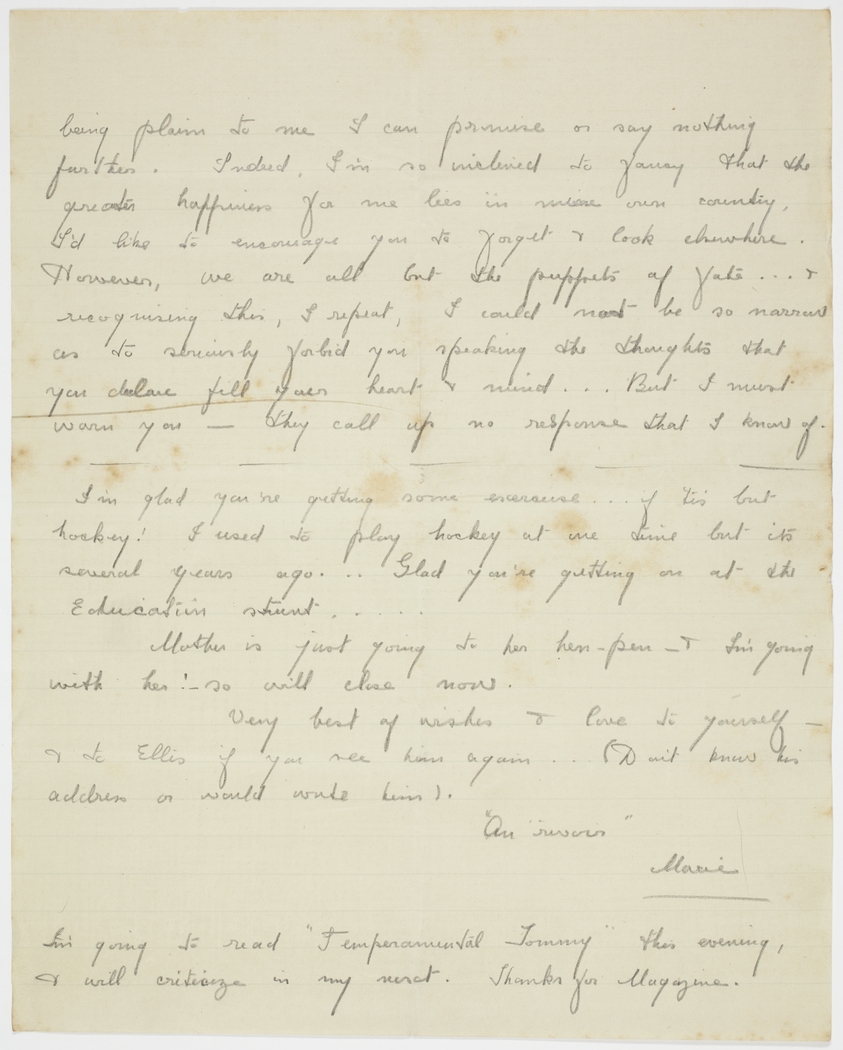 being plain to me I can promise or say nothing
further. Indeed, I'm so inclined to fancy that the
greater happiness for me lies in mine own country,
I'd like to encourage you to forget & look elsewhere.
However, we are all but the puppets of fate... &
recognising this, I repeat, I could not be so narrow
as to seriously forbid you speaking the thoughts that
you declare fill your heart & mind... But I must
warn you — they call up no response that I know of.
I'm glad you're getting some exercise... if 'tis but
hockey! I used to play hockey at one time but its
several years ago... Glad you're getting on at the
Education stunt.....
Mother is just going to her hen-pen — & I'm going
with her! - so will close now.
Very best of wishes & love to yourself —
& to Ellis if you see him again... (Don't know his
address or would write him).
"Au revoir"
Macie
I'm going to read "Temperamental Tommy" this evening,
& will criticize in my next. Thanks for Magazine.